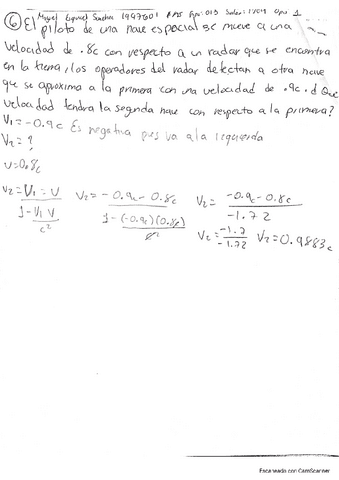 Miguel Ezquivel Sanchez 1997801
⑥ El piloto de una nave espacial se mueve a una
velocidad de .8c con respecto a un radar que se encuentra
en la tierra, los operadores del radar detectan a otra nave
que se aproxima a la primera con una velocidad de .9c. d Que
velocidad tendra la segunda nave con respecto a la primera?
V₁ = -0.9c Es negativa pues va a la izquierda
V₂ = ?
U = 0.8c
V₂ = V₁ - U / 1 - V₁ V / c² V₂ = -0.9c - 0.8c / 1 - (-0.9c)(0.8c) / c² V₂ = -0.9c - 0.8c / -1.72
V₂ = -1.7 / -1.72 V₂ = 0.9883c
Escaneado con CamScanner